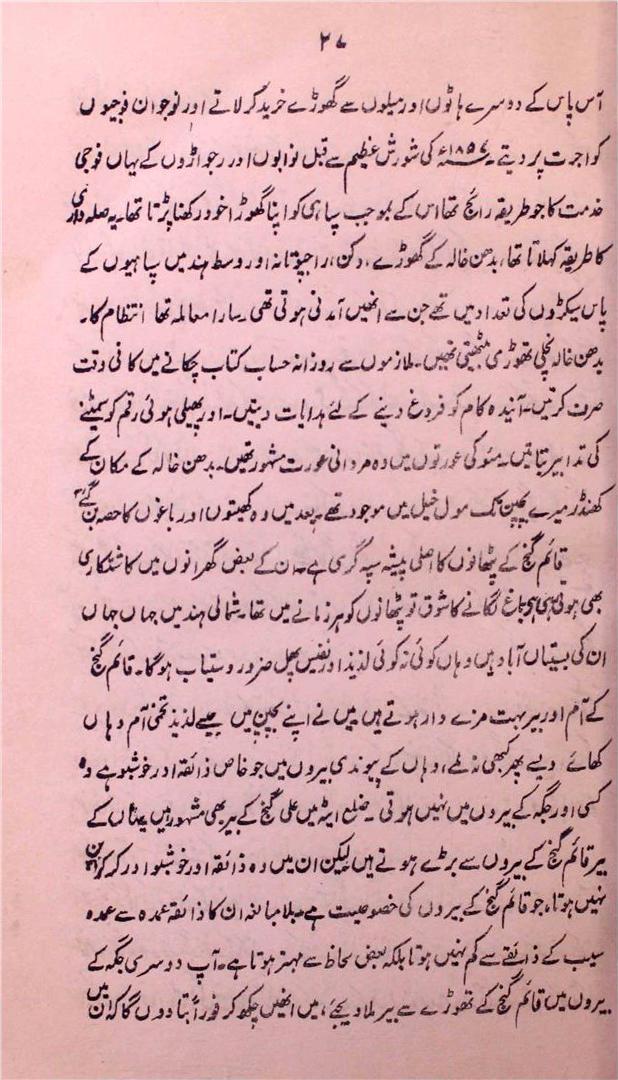 ۲۷
آس پاس کے دوسرے ہاٹوں اور میلوں سے گھوڑے خرید کر لاتے اور نوجوان فوجیوں
کو اجرت پر دیتے۔ ۱۸۵۷ء کی شورش عظیم سے قبل نوابوں اور رجواڑوں کے یہاں فوجی
خدمت کا جو طریقہ رائج تھا اس کے بموجب سپاہی کو اپنا گھوڑا خود رکھنا پڑتا تھا۔ یہ صلہ داری
کا طریقہ کہلاتا تھا، بدھن خالہ کے گھوڑے، دکن، راجپوتانہ اور وسط ہند میں سپاہیوں کے
پاس سیکڑوں کی تعداد میں تھے جن سے انھیں آمدنی ہوتی تھی۔ سارا معاملہ تھا انتظام کا۔
بدھن خالہ نچلی تھوڑی بیٹھتی تھیں۔ ملازموں سے روزانہ حساب کتاب چکانے میں کافی وقت
صرف کرتیں۔ آئندہ کام کو فروغ دینے کے لئے ہدایات دیتیں۔ اور پھیلی ہوئی رقم کو سمیٹنے
کی تدابیر بتاتیں۔ مئو کی عورتوں میں وہ مردانی عورت مشہور تھیں۔ بدھن خالہ کے مکان کے
کھنڈر میرے بچپن تک مول خیل میں موجود تھے۔ بعد میں وہ کھیتوں اور باغوں کا حصہ بن گئے۔
قائم گنج کے پٹھانوں کا اصلی پیشہ سپہ گری ہے۔ ان کے بعض گھرانوں میں کاشتکاری
بھی ہوتی رہی ہے باغ لگانے کا شوق تو پٹھانوں کو ہر زمانے میں تھا۔ شمالی ہند میں جہاں جہاں
ان کی بستیاں آباد ہیں وہاں کوئی نہ کوئی لذیذ اور نفیس پھل ضرور دستیاب ہوگا۔ قائم گنج
کے آم اور بیر بہت مزے دار ہوتے ہیں میں نے اپنے بچپن میں جیسے لذیذ تخمی آم وہاں
کھائے ویسے پھر کبھی نہ ملے، وہاں کے پیوندی بیروں میں جو خاص ذائقہ اور خوشبو ہے وہ
کسی اور جگہ کے بیروں میں نہیں ہوتی۔ ضلع ایٹہ میں علی گنج کے بیر بھی مشہور ہیں یہاں کے
بیر قائم گنج کے بیروں سے بڑے ہوتے ہیں لیکن ان میں وہ ذائقہ اور خوشبو اور کرکراپن
نہیں ہوتا، جو قائم گنج کے بیروں کی خصوصیت ہے۔ بلا مبالغہ ان کا ذائقہ عمدہ سے عمدہ
سیب کے ذائقے سے کم نہیں ہوتا بلکہ بعض لحاظ سے بہتر ہوتا ہے۔ آپ دوسری جگہ کے
بیروں میں قائم گنج کے تھوڑے سے بیر ملا دیجئے، میں انھیں چکھ کر فوراً بتا دوں گا کہ ان میں